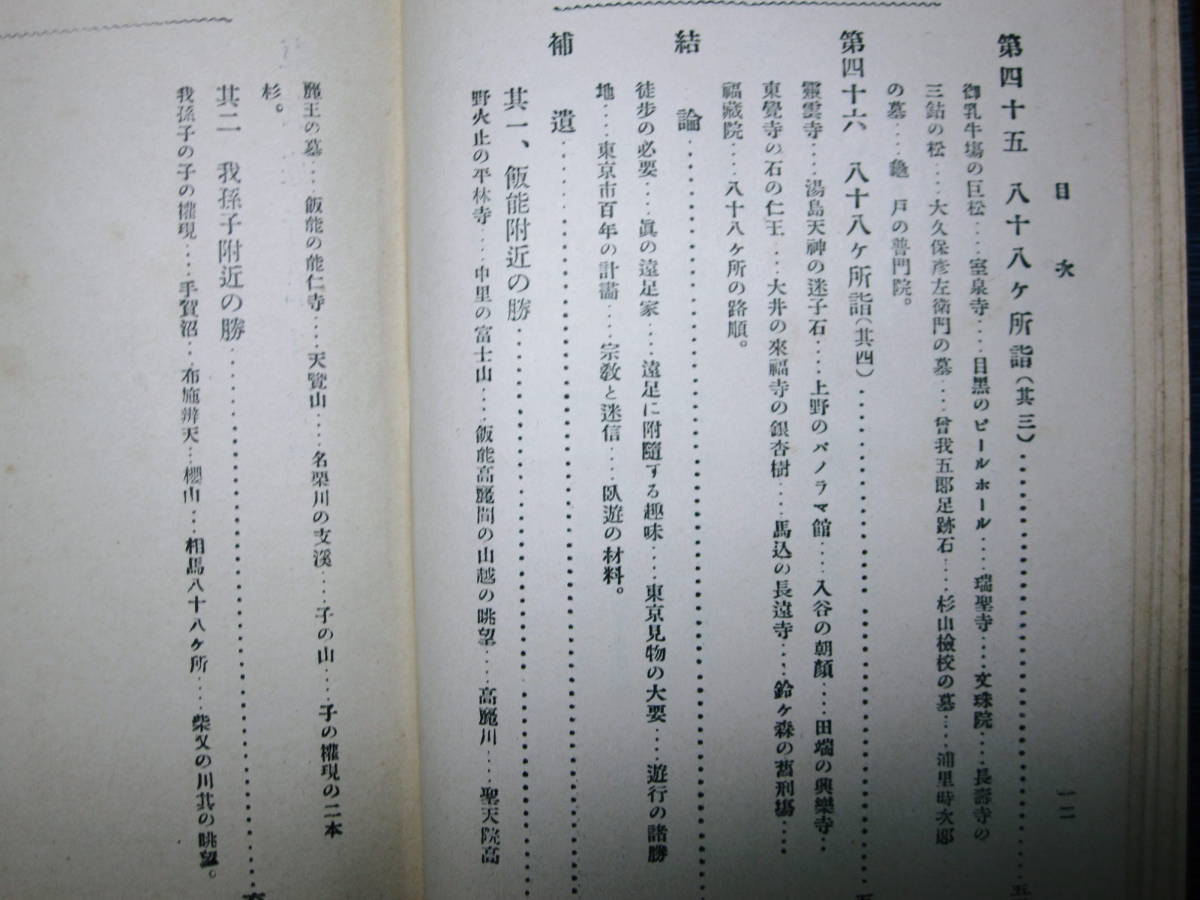 目次
一二
第四十五 八十八ヶ所詣(其三)‥‥‥‥‥‥‥‥五
御乳牛場の巨松‥‥室泉寺‥‥目黒のビールホール‥‥瑞聖寺‥‥文珠院‥‥長壽寺の
三鈷の松‥‥大久保彦左衛門の墓‥‥曾我五郎足跡石‥‥杉山檢校の墓‥‥浦里時次郎
の墓‥‥龜戸の普門院。
第四十六 八十八ヶ所詣(其四)‥‥‥‥‥‥‥‥五
靈雲寺‥‥湯島天神の迷子石‥‥上野のパノラマ館‥‥入谷の朝顏‥‥田端の興樂寺‥‥
東覺寺の石の仁王‥‥大井の來福寺の銀杏樹‥‥馬込の長遠寺‥‥鈴ヶ森の舊刑場‥‥
福藏院‥‥八十八ヶ所の路順。
結論‥‥‥‥‥‥‥‥
徒歩の必要‥‥眞の遠足家‥‥遠足に附隨する趣味‥‥東京見物の大要‥‥遊行の諸勝
地‥‥東京市百年の計畵‥‥宗敎と迷信‥‥臥遊の材料。
補遺‥‥‥‥‥‥‥‥
其一、飯能附近の勝‥‥‥‥‥‥‥‥
野火止の平林寺‥‥中里の富士山‥‥飯能高麗間の山越の眺望‥‥高麗川‥‥聖天院高
麗王の墓‥‥飯能の能仁寺‥‥天覽山‥‥名栗川の支溪‥‥子の山‥‥子の權現の二本
杉。
其二 我孫子附近の勝‥‥‥‥‥‥‥‥
我孫子の子の權現‥‥手賀沼‥‥布施辨天‥‥櫻山‥‥相馬八十八ヶ所‥‥柴又の川甚の眺望。